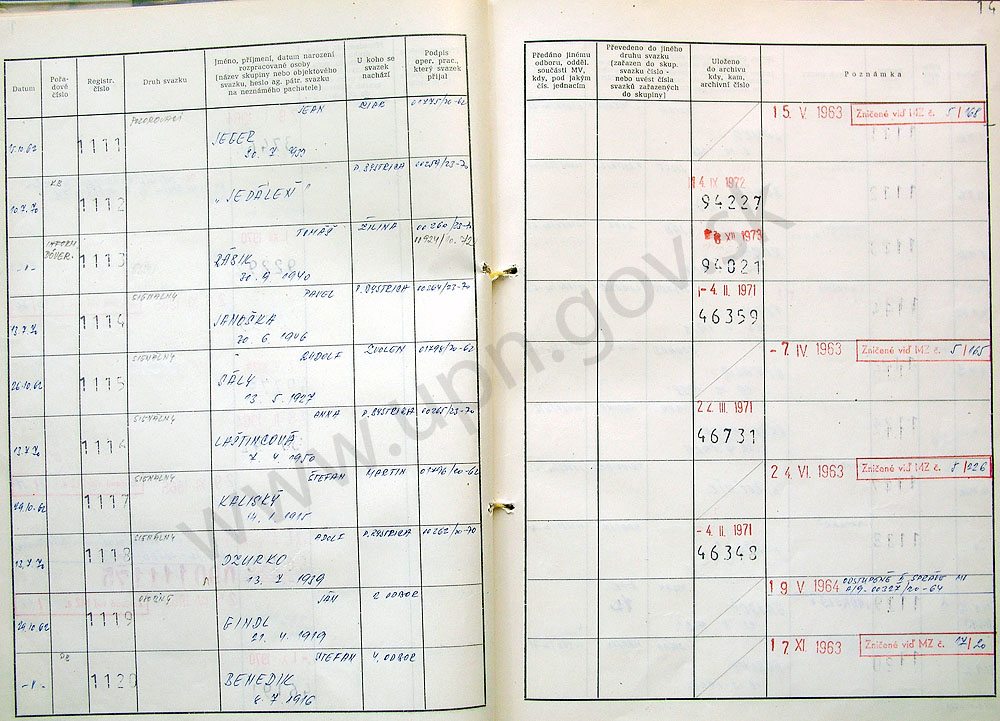 14
Datum
Pořa-
dové
číslo
Registr.
číslo
Druh svazku
Jméno, příjmení, datum narození
rozpracované osoby
(název skupiny nebo objektového
svazku, heslo ag. pátr. svazku
na neznámého pachatele)
U koho se
svazek
nachází
Podpis
oper. prac.,
který svazek
přijal
Předáno jinému
odboru, odděl.
součásti MV,
kdy, pod jakým
čís. jednacím
Převedeno do jiného
druhu svazku
(zařazen do skup.
svazku číslo -
nebo uvést čísla
svazků zařazených
do skupiny)
Uloženo
do archivu
kdy, kam,
archivní číslo
Poznámka
POZOROVACÍ JEAN
1111 JEGER
15. V. 1963 Zničené viď MZ č. 5/168
KB B. BYSTRICA 00259/23-70
10.7.70 1112 "JEDÁLEŇ"
4. IX 1972
94227
INFORM. TOMÁŠ ŽILINA
DÔVER. 1113 ŽÁŠIK
30. 9. 1940
XII 1973
94021
SIGNÁLNY PAVEL B. BYSTRICA 00264/23-70
13.7.70 1114 JANOŠKA
20. 6. 1946
- 4. II. 1971
46359
SIGNÁLNY RUDOLF ZVOLEN 01794/20-62
26.10.62 1115 SÁLY
13. 5. 1927
- 7. IV. 1963 Zničené viď MZ č. 5/165
SIGNÁLNY ANNA B. BYSTRICA 00265/23-70
13.7.70 1116 LAŠTINCOVÁ
7. 4. 1950
2 2. III. 1971
46731
SIGNÁLNY ŠTEFAN MARTIN 01796/20-62
29.10.62 1117 KALISKÝ
14. 1. 1915
2 4. VI. 1963 Zničené viď MZ č. 8/226
SIGNÁLNY ADOLF B. BYSTRICA 00262/20-70
13.7.70 1118 DZURKO
13. 7. 1939
- 4. II. 1971
46348
OSOBNÝ JÁN 2. ODBOR
29.10.62 1119 GINDL
21. 4. 1919
1 9. V 1964 ODSTÚPENÉ
A/9-00327/20-64
ŠTEFAN 4. ODBOR
-"- 1120 BENEDIK
8. 7. 1916
1 7. XI. 1963 Zničené viď MZ č. 17/20
www.upn.gov.sk